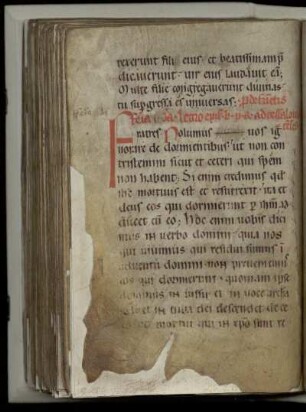 rexerunt filii eius et beatissimam p̄
dicauerunt · uir eius laudauit eā;
Multe filie congregauerunt diuitias ·
tu sup̄gressa es uniuersas; p defunctis
Fratres Nolumus uos ig
norare de dormientibus ut non con
tristemini sicut et ceteri qui spem
non habent; Si enim credimus qđ
ihc mortuus est et resurrexit · ita et
deus eos qui dormierunt p ihm ad
ducet cū eo; hoc enim uobis dici
mus in uerbo domini · quia nos
qui uiuimus qui residui sumus i
aduentū domini · non preueniem
eos qui dormierunt · quoniam ipse
dominus in iussu et in uoce archa
et in tuba dei descendet de ce
et mortui qui in xp̄o sunt re